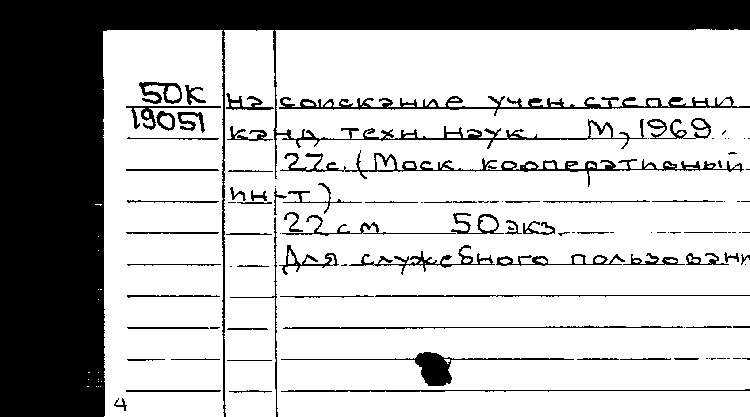 50К на соискание учен. степени
19051 канд. техн. наук. М, 1969.
27с. (Моск. кооперативный
ин-т).
22 см. 50 экз.
Для служебного пользовани
4